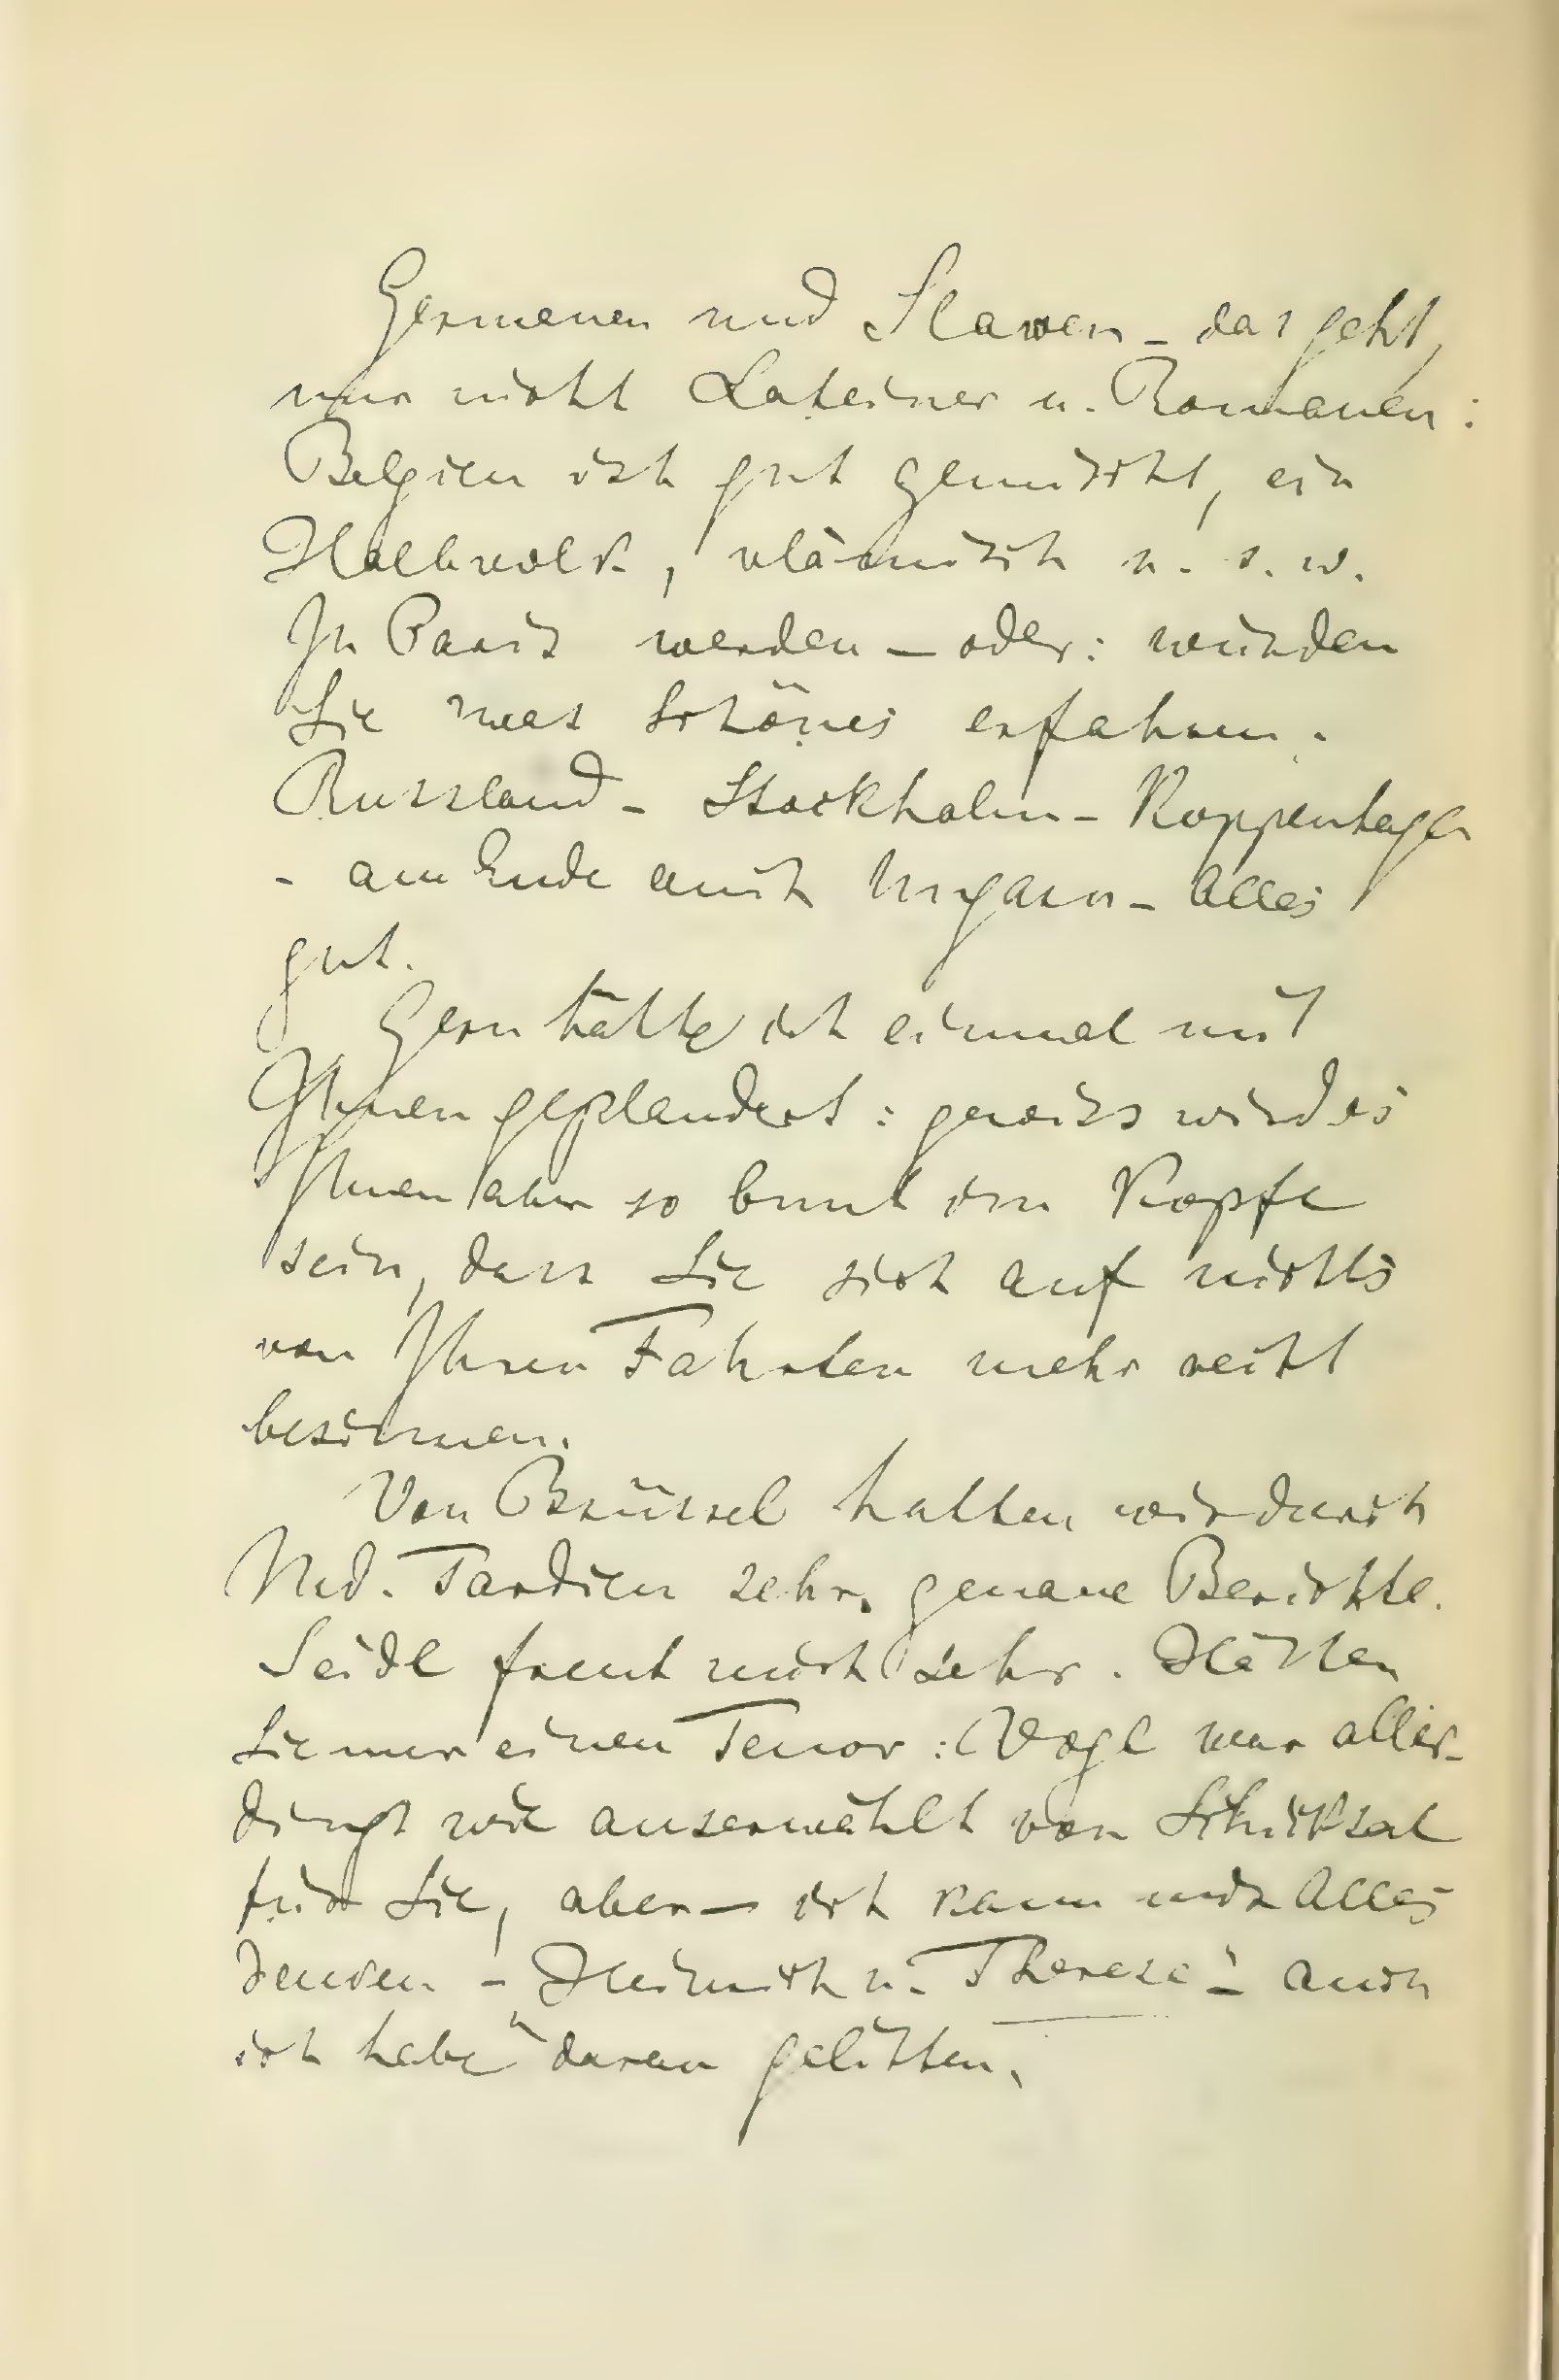 Germanen und Slaven – das geht,
nur nicht Lateiner u. Romanen:
Belgien ist gut gemischt, ein
Halbvolk, vlämisch u. s. w.
In Paris werden – oder: würden
Sie was Schönes erfahren.
Russland – Stockholm – Koppenhagen
– am Ende auch Ungarn – Alles
gut.
Gern hätte ich einmal mit
Ihnen geplaudert: gewiss wird es
Ihnen aber so bunt im Kopfe
sein, dass Sie sich auf nichts
von Ihren Fahrten mehr recht
besinnen.
Von Brüssel hatten wir durch
Md. Tardieu sehr genaue Berichte.
Seidl freut mich sehr. Hätten
Sie nur einen Tenor: Vogl war aller-
dings wie auserwählt vom Schicksal
für Sie, aber – ich kann mir Alles
denken – Heinrich u. Therese – auch
ich habe daran gelitten.